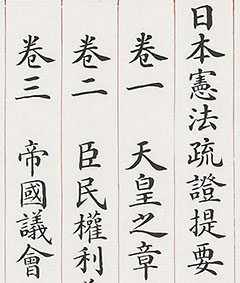 日本憲法疏證提要
卷一 天皇之章
卷二 臣民權利
卷三 帝國議會